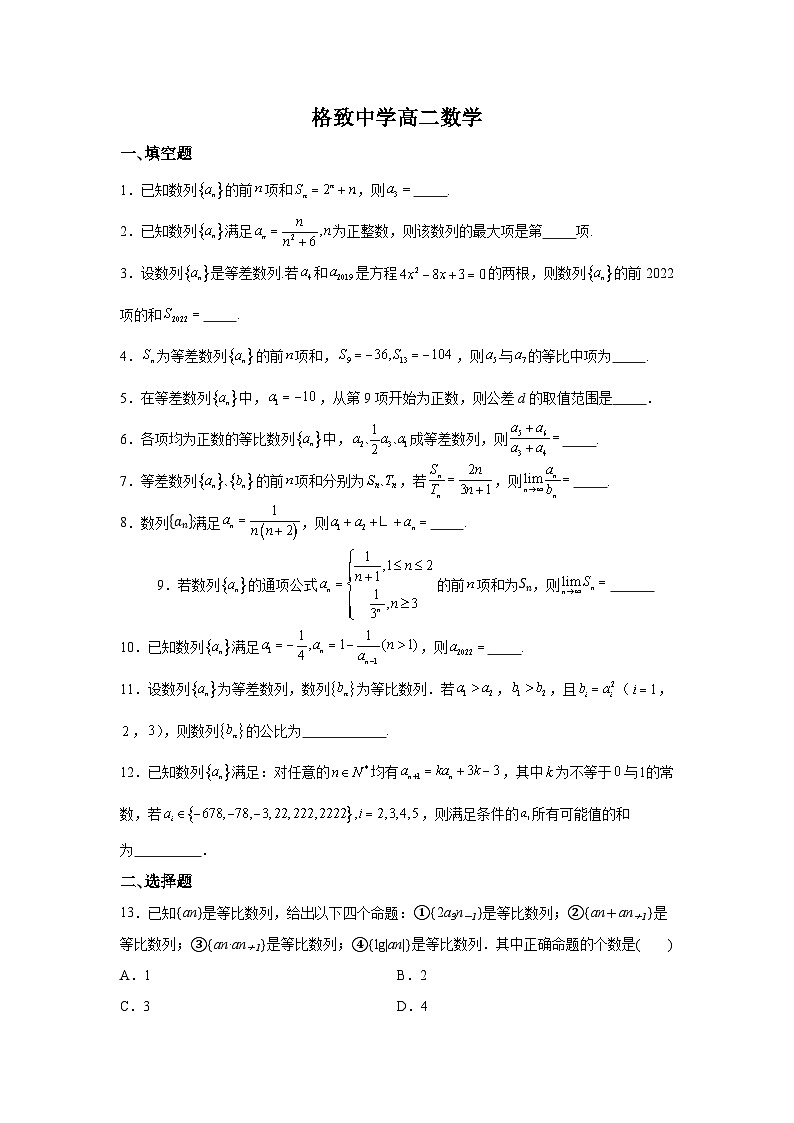 格致中学高二数学
一、填空题
1．已知数列{aₙ}的前n项和Sₙ = 2ⁿ + n，则a₃ = _____.
2．已知数列{aₙ}满足aₙ = n/(n² + 6), n为正整数，则该数列的最大项是第_____项.
3．设数列{aₙ}是等差数列.若a₄和a₂₀₁₉是方程4x² − 8x + 3 = 0的两根，则数列{aₙ}的前 2022
项的和S₂₀₂₂ = _____.
4．Sₙ为等差数列{aₙ}的前n项和，S₉ = −36, S₁₃ = −104，则a₅与a₇的等比中项为_____.
5．在等差数列{aₙ}中，a₁ = −10，从第 9 项开始为正数，则公差 d 的取值范围是_____．
6．各项均为正数的等比数列{aₙ}中，a₂、(1/2)a₃、a₁成等差数列，则(a₅ + a₆)/(a₃ + a₄) = _____.
7．等差数列{aₙ}、{bₙ}的前n项和分别为Sₙ、Tₙ，若Sₙ/Tₙ = 2n/(3n + 1)，则lim(n→∞) aₙ/bₙ = _____.
8．数列{aₙ}满足aₙ = 1/(n(n + 2))，则a₁ + a₂ + L + aₙ = _____.
9．若数列{aₙ}的通项公式aₙ = { 1/(n + 1), 1 ≤ n ≤ 2; 1/3ⁿ, n ≥ 3 的前n项和为Sₙ，则lim(n→∞) Sₙ = ______
10．已知数列{aₙ}满足a₁ = −1/4, aₙ = 1 − 1/aₙ₋₁ (n > 1)，则a₂₀₂₂ = _____.
11．设数列{aₙ}为等差数列，数列{bₙ}为等比数列．若a₁ > a₂，b₁ > b₂，且bᵢ = aᵢ²（i = 1，
2，3），则数列{bₙ}的公比为____________.
12．已知数列{aₙ}满足：对任意的n ∈ N*均有aₙ₊₁ = kaₙ + 3k − 3，其中k为不等于0与1的常
数，若aᵢ ∈ {−678, −78, −3, 22, 222, 2222}, i = 2, 3, 4, 5，则满足条件的a₁所有可能值的和
为__________．
二、选择题
13．已知{an}是等比数列，给出以下四个命题：①{2a₃n₋₁}是等比数列；②{an＋an₊₁}是
等比数列；③{an·an₊₁}是等比数列；④{lg|an|}是等比数列．其中正确命题的个数是( )
A．1 B．2
C．3 D．4